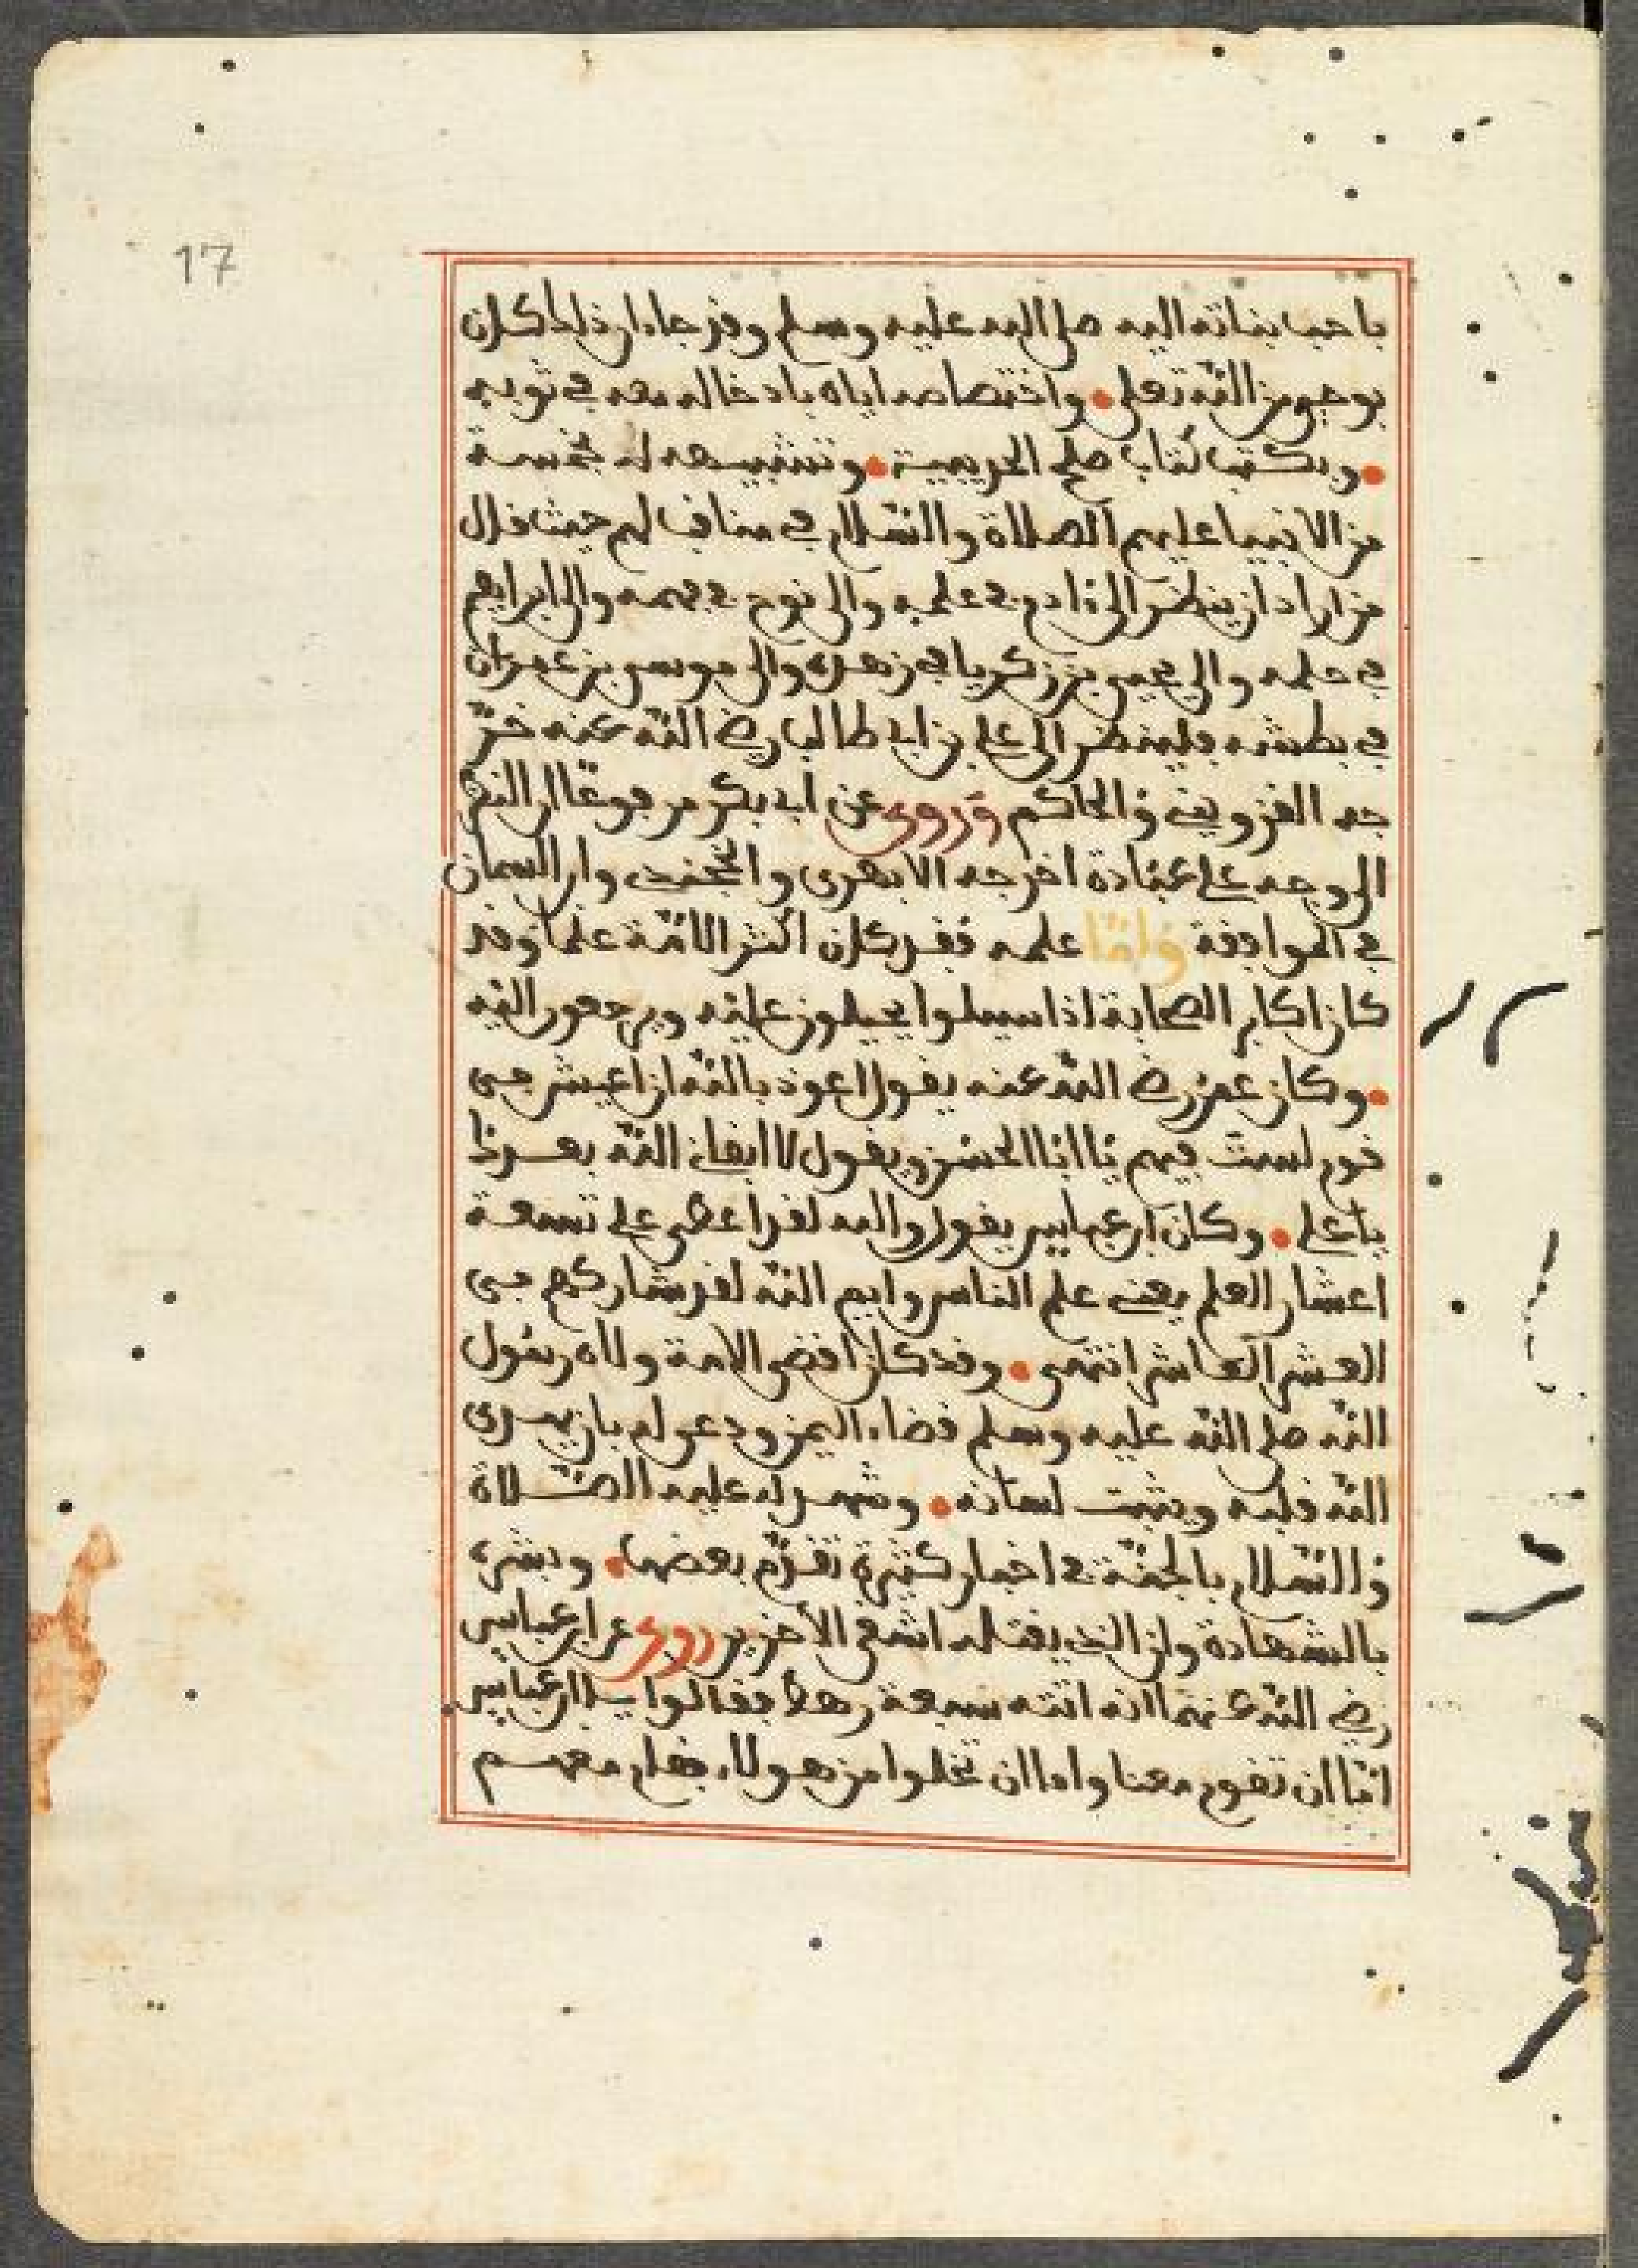 17
باحب بناته اليه صلى الله عليه وسلم وقد جاء ان ذلك كان
بوحي من الله تعلى • واختصاصه اياه بادخاله معه في ثوبه
• وبكتب كتاب صلح الحديبية • وتشبيهه له بخمسة
من الانبيا عليهم الصلاة والسلام في مناقب لهم حيث قال
من اراد ان ينظر الى ءادم في علمه والى نوح في فهمه والى ابراهيم
في حلمه والى يحيى بن زكريا في زهده والى موسى بن عمران
في بطشه فلينظر الى علي بن ابي طالب رضي الله عنه خر
جه القزويني والحاكم وروى عن ابي بكر مرفوعا ان النظر
الى وجه علي عبادة اخرجه الابهري والخجندي وابن السمان
في الموافقة واما علمه فقد كان اكثر الامة علما وقد
كان اكابر الصحابة اذا سيلوا يحيلون عليه ويرجعون اليه
• وكان عمر رضي الله عنه يقول اعوذ بالله ان اعيش في
قوم لست فيهم يا ابا الحسن ويقول لا ابقاني الله بعدك
يا علي • وكان ابن عباس يقول والله لقد اعطي علي تسعة
اعشار العلم يعني علم الناس وايم الله لقد شاركهم في
العشر العاشر انتهى • وقد كان اقضى الامة ولاه رسول
الله صلى الله عليه وسلم قضاء اليمن ودعى له بان يهدي
الله قلبه ويثبت لسانه • وشهد له عليه الصلاة
والسلام بالجنة في اخبار كثيرة تقدم بعضها • وبشره
بالشهادة وان الذي يقتله اشقى الاخرين روى عن ابن عباس
رضي الله عنهما انه اتته سبعة رهط فقالوا يا ابن عباس
اما ان تقوم معنا واما ان تخلوا من هولاء فقام معهم